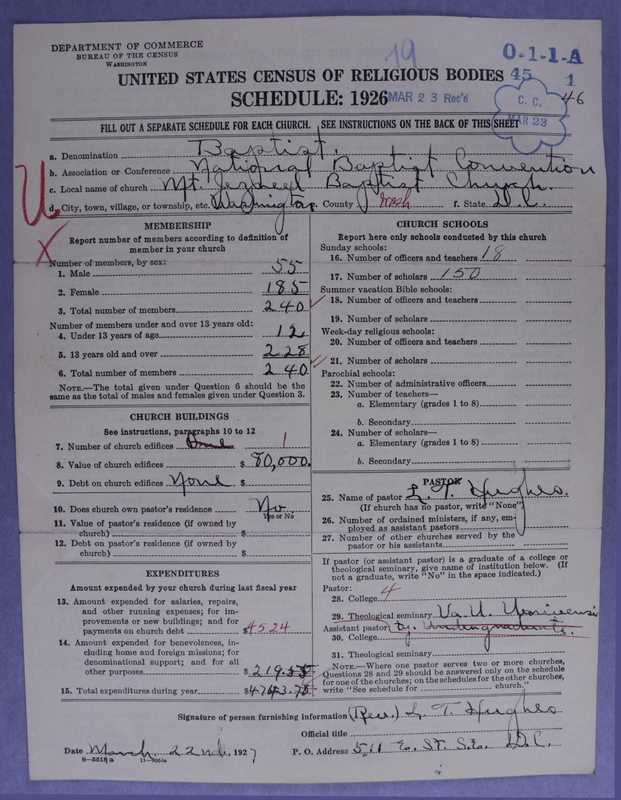 DEPARTMENT OF COMMERCE
BUREAU OF THE CENSUS
WASHINGTON
19
O-1-1-A
UNITED STATES CENSUS OF RELIGIOUS BODIES 45 1
SCHEDULE: 1926 MAR 23 Rec'd C. C. 46
MAR 23
FILL OUT A SEPARATE SCHEDULE FOR EACH CHURCH. SEE INSTRUCTIONS ON THE BACK OF THIS SHEET
a. Denomination Baptist.
b. Association or Conference National Baptist Convention
c. Local name of church Mt. Jezreel Baptist Church.
d. City, town, village, or township, etc. Washington e. County Wash f. State D.C.
U
X
MEMBERSHIP
Report number of members according to definition of
member in your church
Number of members, by sex:
1. Male 55
2. Female 185
3. Total number of members 240
Number of members under and over 13 years old:
4. Under 13 years of age 12
5. 13 years old and over 228
6. Total number of members 240
NOTE.—The total given under Question 6 should be the
same as the total of males and females given under Question 3.
CHURCH BUILDINGS
See instructions, paragraphs 10 to 12
7. Number of church edifices One 1
8. Value of church edifices $80,000.
9. Debt on church edifices None $
10. Does church own pastor's residence No
Yes or No
11. Value of pastor's residence (if owned by
church) $
12. Debt on pastor's residence (if owned by
church) $
EXPENDITURES
Amount expended by your church during last fiscal year
13. Amount expended for salaries, repairs,
and other running expenses; for im-
provements or new buildings; and for
payments on church debt $4524
14. Amount expended for benevolences, in-
cluding home and foreign missions; for
denominational support; and for all
other purposes $219.
15. Total expenditures during year $4743.
CHURCH SCHOOLS
Report here only schools conducted by this church
Sunday schools:
16. Number of officers and teachers 18
17. Number of scholars 150
Summer vacation Bible schools:
18. Number of officers and teachers
19. Number of scholars
Week-day religious schools:
20. Number of officers and teachers
21. Number of scholars
Parochial schools:
22. Number of administrative officers
23. Number of teachers—
a. Elementary (grades 1 to 8)
b. Secondary
24. Number of scholars—
a. Elementary (grades 1 to 8)
b. Secondary
PASTOR
25. Name of pastor L. T. Hughes.
(If church has no pastor, write "None")
26. Number of ordained ministers, if any, em-
ployed as assistant pastors
27. Number of other churches served by the
pastor or his assistants
If pastor (or assistant pastor) is a graduate of a college or
theological seminary, give name of institution below. (If
not a graduate, write "No" in the space indicated.)
Pastor:
28. College 4
29. Theological seminary Va. U.
Assistant pastor: Undergraduate.
30. College
31. Theological seminary
NOTE.—Where one pastor serves two or more churches,
Questions 28 and 29 should be answered only on the schedule
for one of the churches; on the schedules for the other churches,
write "See schedule for church."
Signature of person furnishing information (Rev.) L. T. Hughes
Official title
Date March 22nd, 1927 P. O. Address 511 E. ST. S.E. D.C.
8-5518a 11-9054a